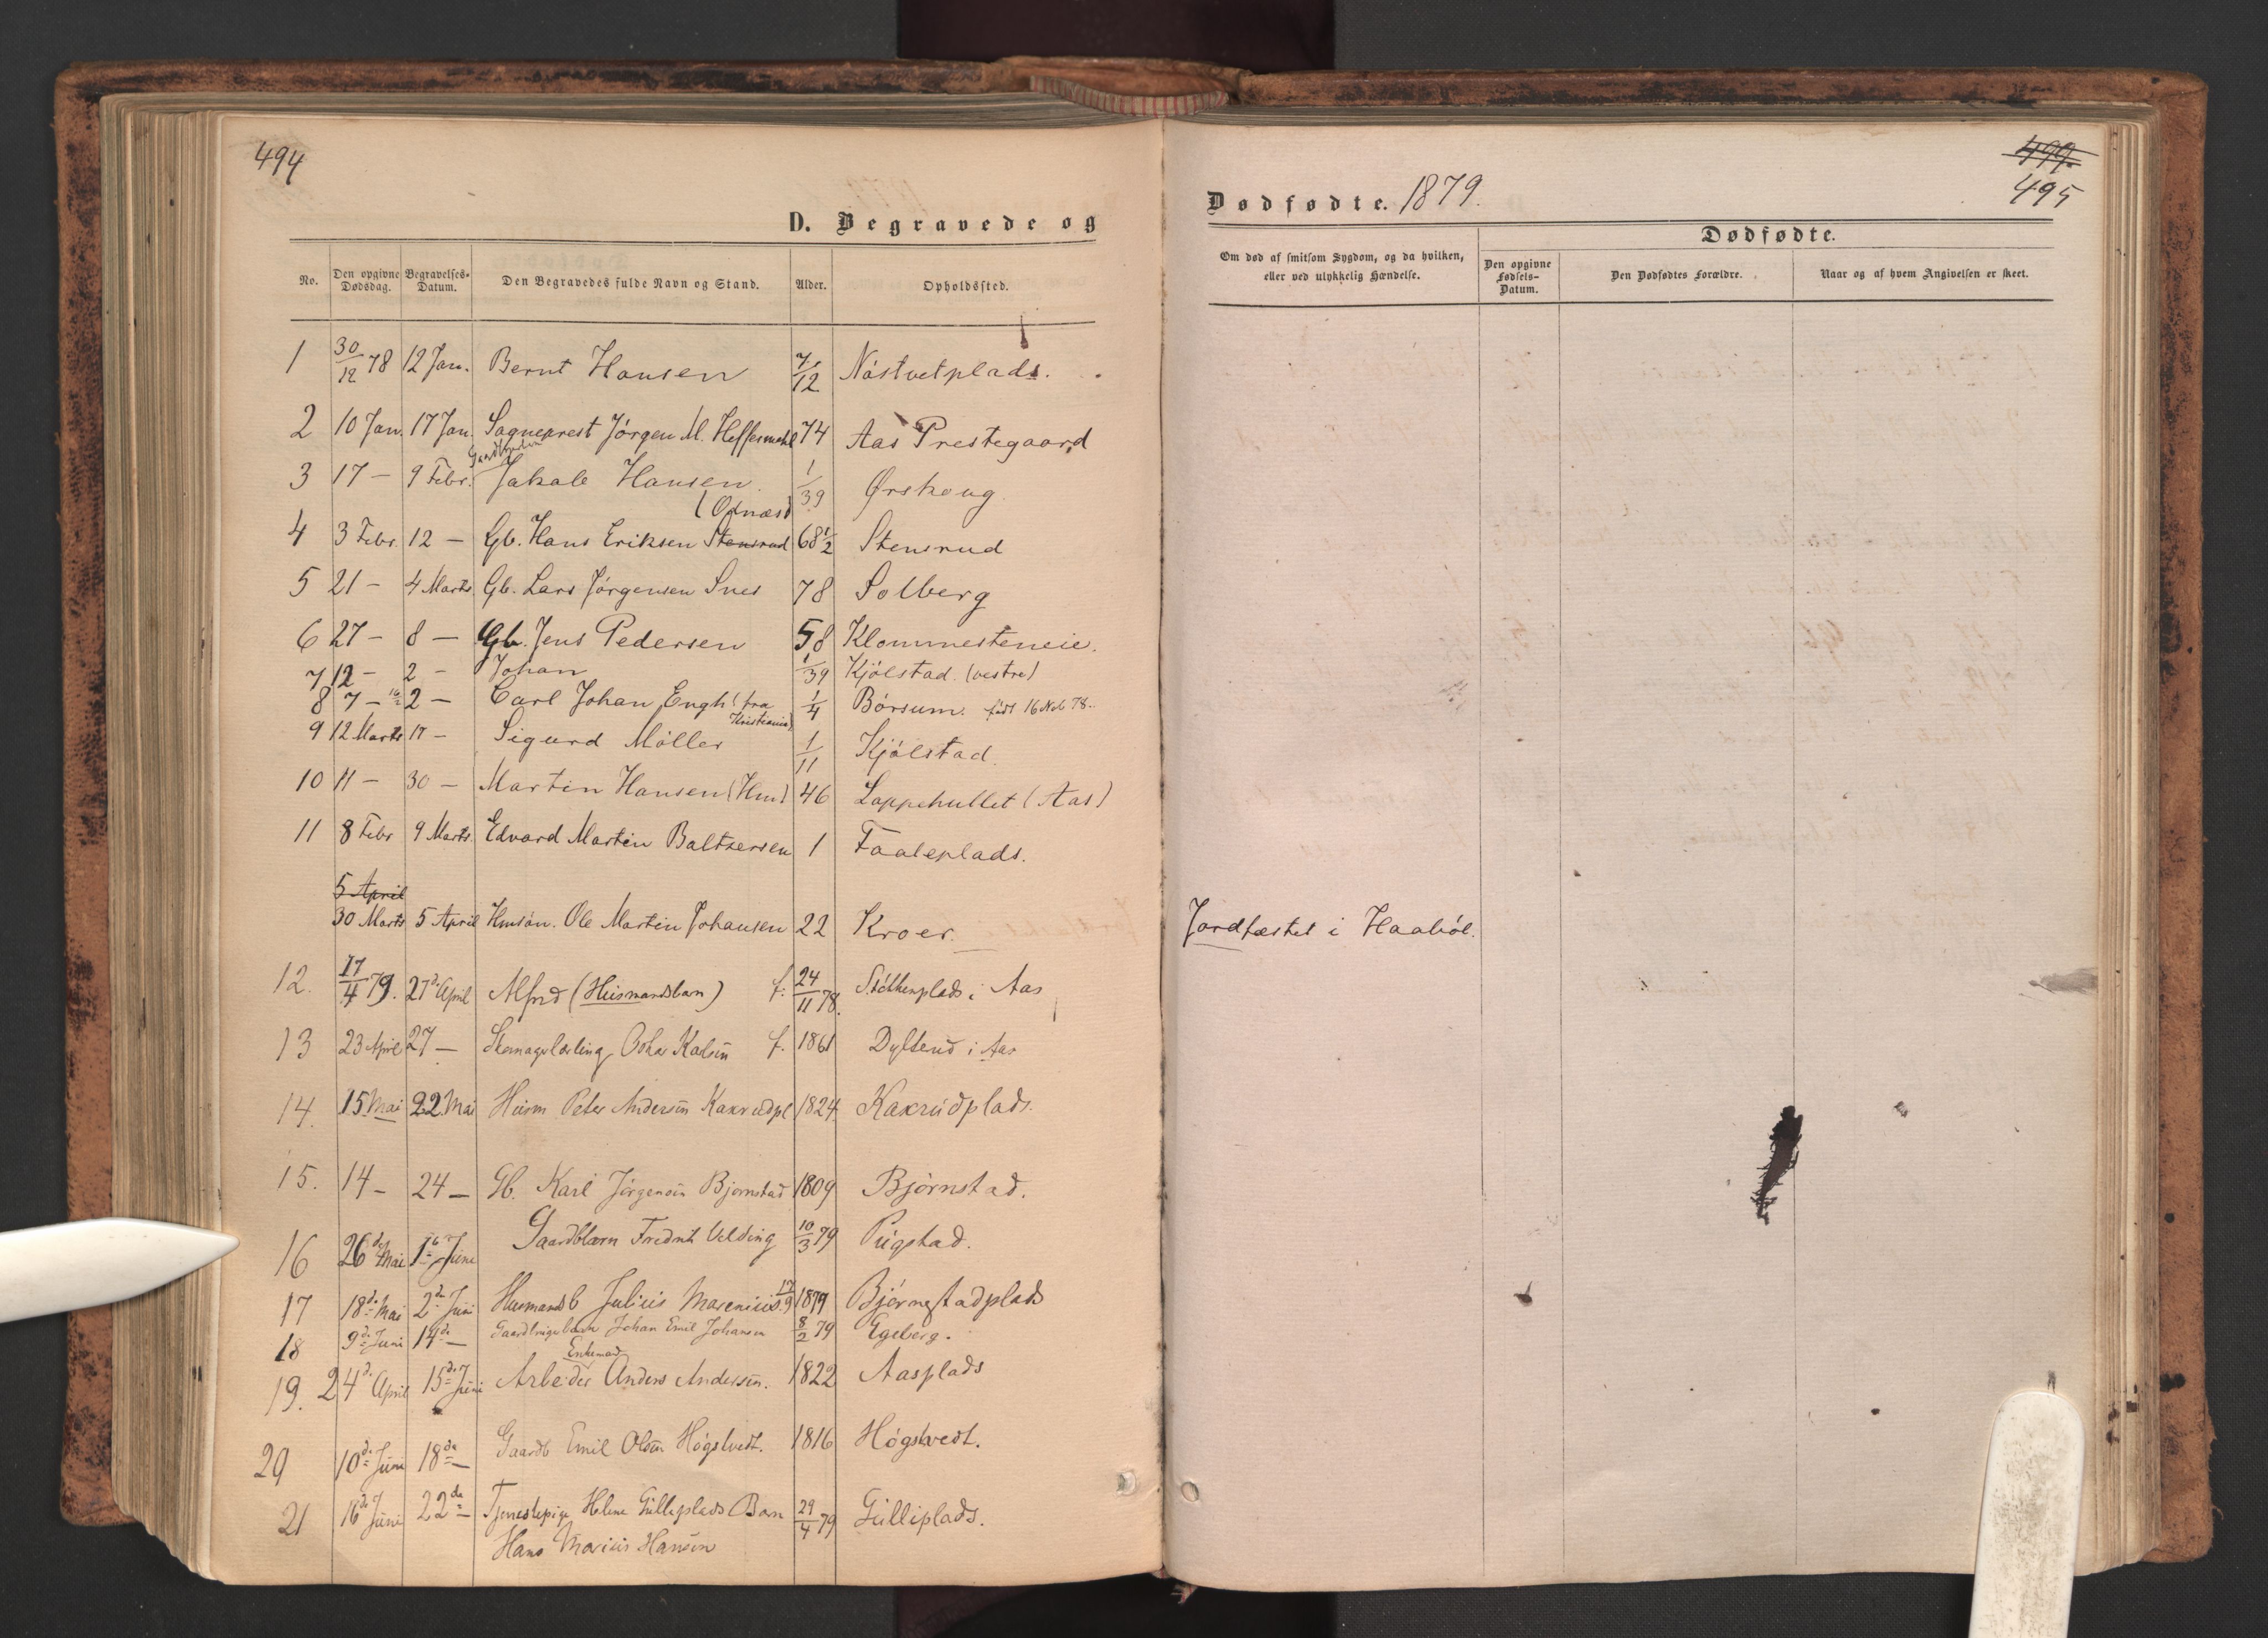 494
D. Begravede og
No. Den opgivne Dødsdag. Begravelses-Datum. Den Begravedes fulde Navn og Stand. Alder. Opholdssted.
1 30/12 78 12 Jan. Bernt Hansen 7/12 Nästvetplads.
2 10 Jan. 17 Jan. Sogneprest Jörgen M. Heffermehl 74 Aas Prestegaard
3 17 – 9 Febr. Jakob Hansen 1/39 Ørskoug
4 3 Febr. 12 – Gb. Hans Eriksen Stensrud 68 1/2 Stensrud
5 21 – 4 Marts Gb. Lars Jörgensen Snes 78 Solberg
6 27 – 8 – Gb. Jens Pedersen 58 Klommesteneie.
7 12 – 2 – Johan 1/39 Kjölstad. (vestre)
8 7 – 2 – Carl Johan Engh (fra Kristiania) 1/4 Börsum. födt 16 Nov 78.
9 12 Marts 17 – Sigurd Möller 1/11 Kjölstad.
10 11 – 30 – Martin Hansen (Hm) 46 Loppehullet (Aas)
11 8 Febr 9 Marts Edvard Martin Baltzersen 1 Faaleplads.
5 April
30 Marts 5 April Hmsön. Ole Martin Johansen 22 Kroer.
12. 17/4 79. 27de April Alfred (Husmandsbarn) f. 24/11 78. plads i Aas
13 23 April 27 – Skomagerlærling Oskar Karlsen f. 1861 i Aas
14. 15 Mai 22 Mai Husm Peter Andersen Kaxrudpl 1824 Kaxrudplads.
15. 14 – 24 – Gb. Karl Jörgensen Bjørnstad 1809 Björnstad.
16 26de Mai 1ste Juni Gaardbbarn Fredrik Velding 10/3 79 Pugstad.
17 18de Mai 2de Juni Husmandsb Julius Marenius 1879 Björnestadplads
18 9de Juni 14de – Johan Emil Johansen 8/2 79 Egeberg.
Enkemand
19. 24de April 15de Juni Arbeider Anders Andersen. 1822 Aasplads
20 10de Juni 18de – Gaardb Emil Olsen Högstvedt. 1816 Högstvedt.
21 16de Juni 22de – Tjenestepige Helene Gulliplads Barn 29/4 79 Gulliplads.
Hans Marius Hansen
499.
495
Dødfødte. 1879.
Dødfødte.
Om død af smitsom Sygdom, og da hvilken, eller ved ulykkelig Hændelse. Den opgivne Fødsels-Datum. Den Dødfødtes Forældre. Naar og af hvem Angivelsen er skeet.
Jordfæstet i Haaböl.